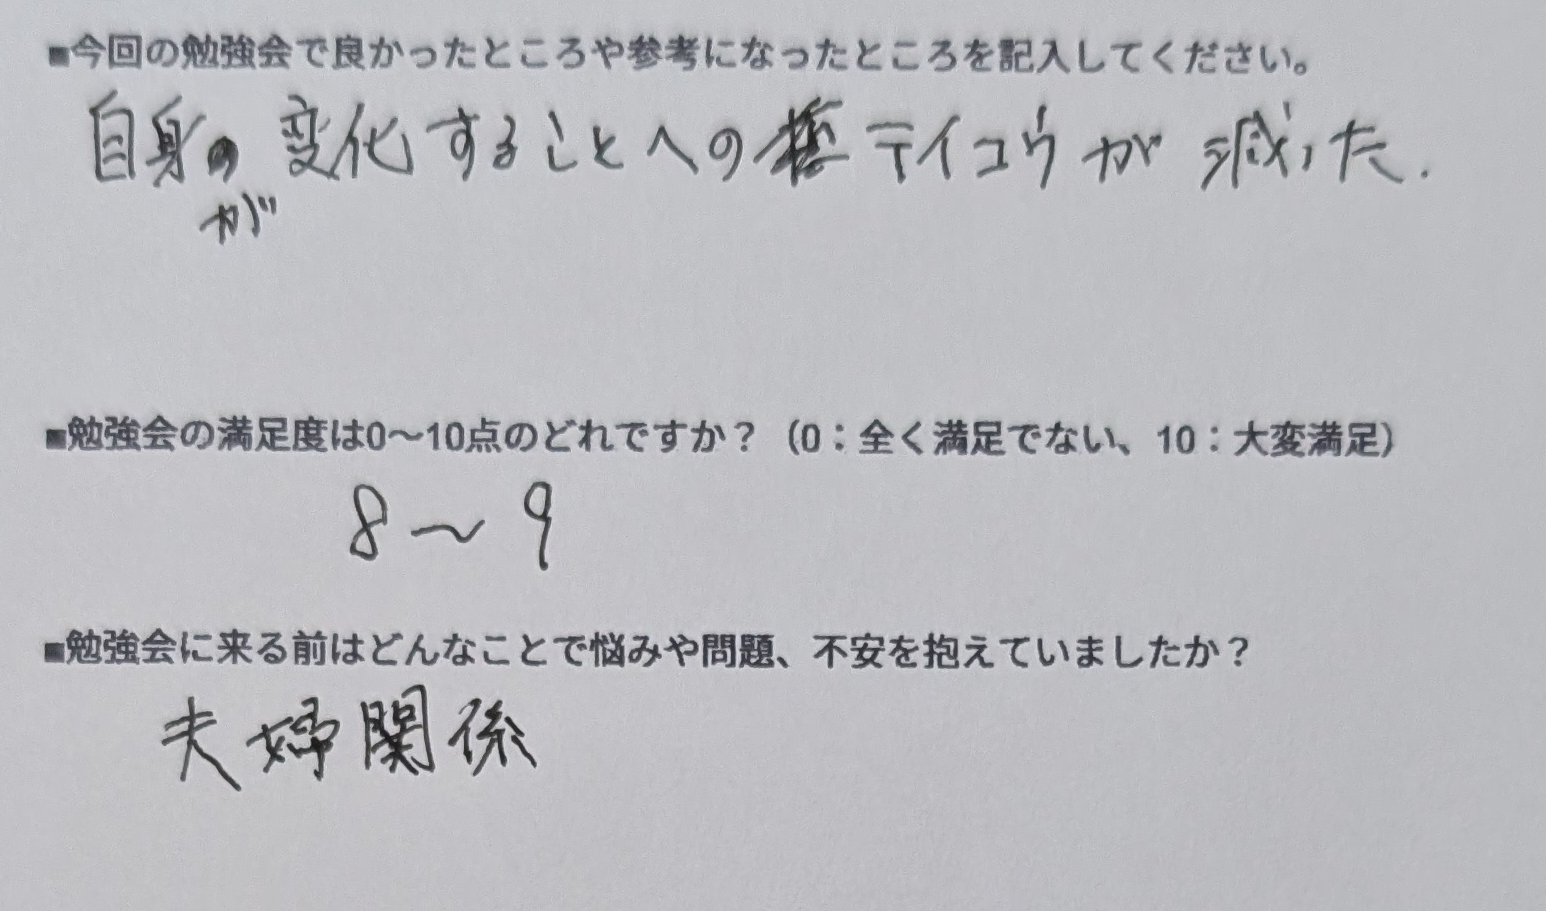 ■今回の勉強会で良かったところや参考になったところを記入してください。
自身が変化することへのテイコウが減った.
■勉強会の満足度は0〜10点のどれですか？（0：全く満足でない、10：大変満足）
8〜9
■勉強会に来る前はどんなことで悩みや問題、不安を抱えていましたか？
夫婦関係